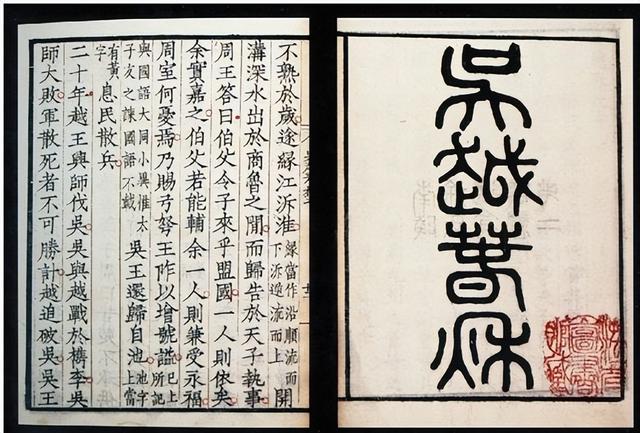 吳越春秋
不熟於歲途縁江泝淮縁當作沿順流而下泝逆流而上開
溝深水出於商魯之閒而歸告於天子執事
周王答曰伯父令子來乎盟國一人則依矣
余實嘉之伯父若能輔余一人則兼受永福
周室何憂焉乃賜弓弩王阼以增號諡已上所記
與國語大同小異惟太子友之諫國語不載吳王還歸自池池字上當
有黃字息民散兵
二十年越王興師伐吳吳與越戰於檇李吳
師大敗軍散死者不可勝計越迫破吳吳王